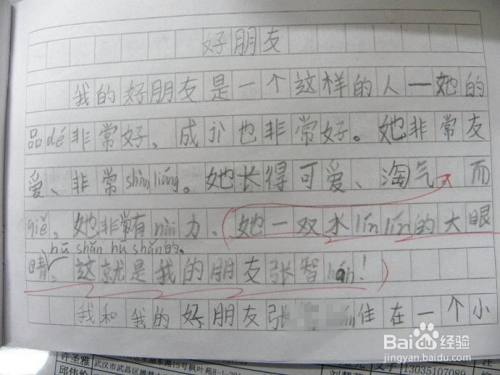 好朋友
我的好朋友是一个这样的人—她的
品dé非常好。成jì也非常好。她非常友
爱、非常shàn liáng。她长得可爱、淘气、而
qiě,她非常有nài力、她一双水lín lín的大眼
hū shǎn hū shǎn的。
睛,这就是我的朋友张智hán!
我和我的好朋友张 住在一个小
Baidu百科经验
jingyan.baidu.com
13035107089